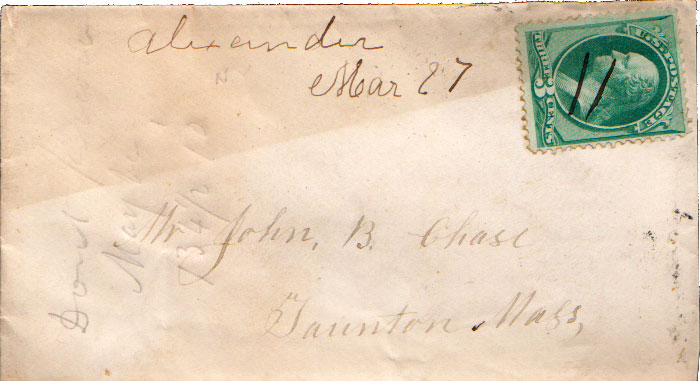 Alexander
Mar 27
U.S. POSTAGE
THREE 3 CENTS
Mr John, B. Chase
Taunton Mass,